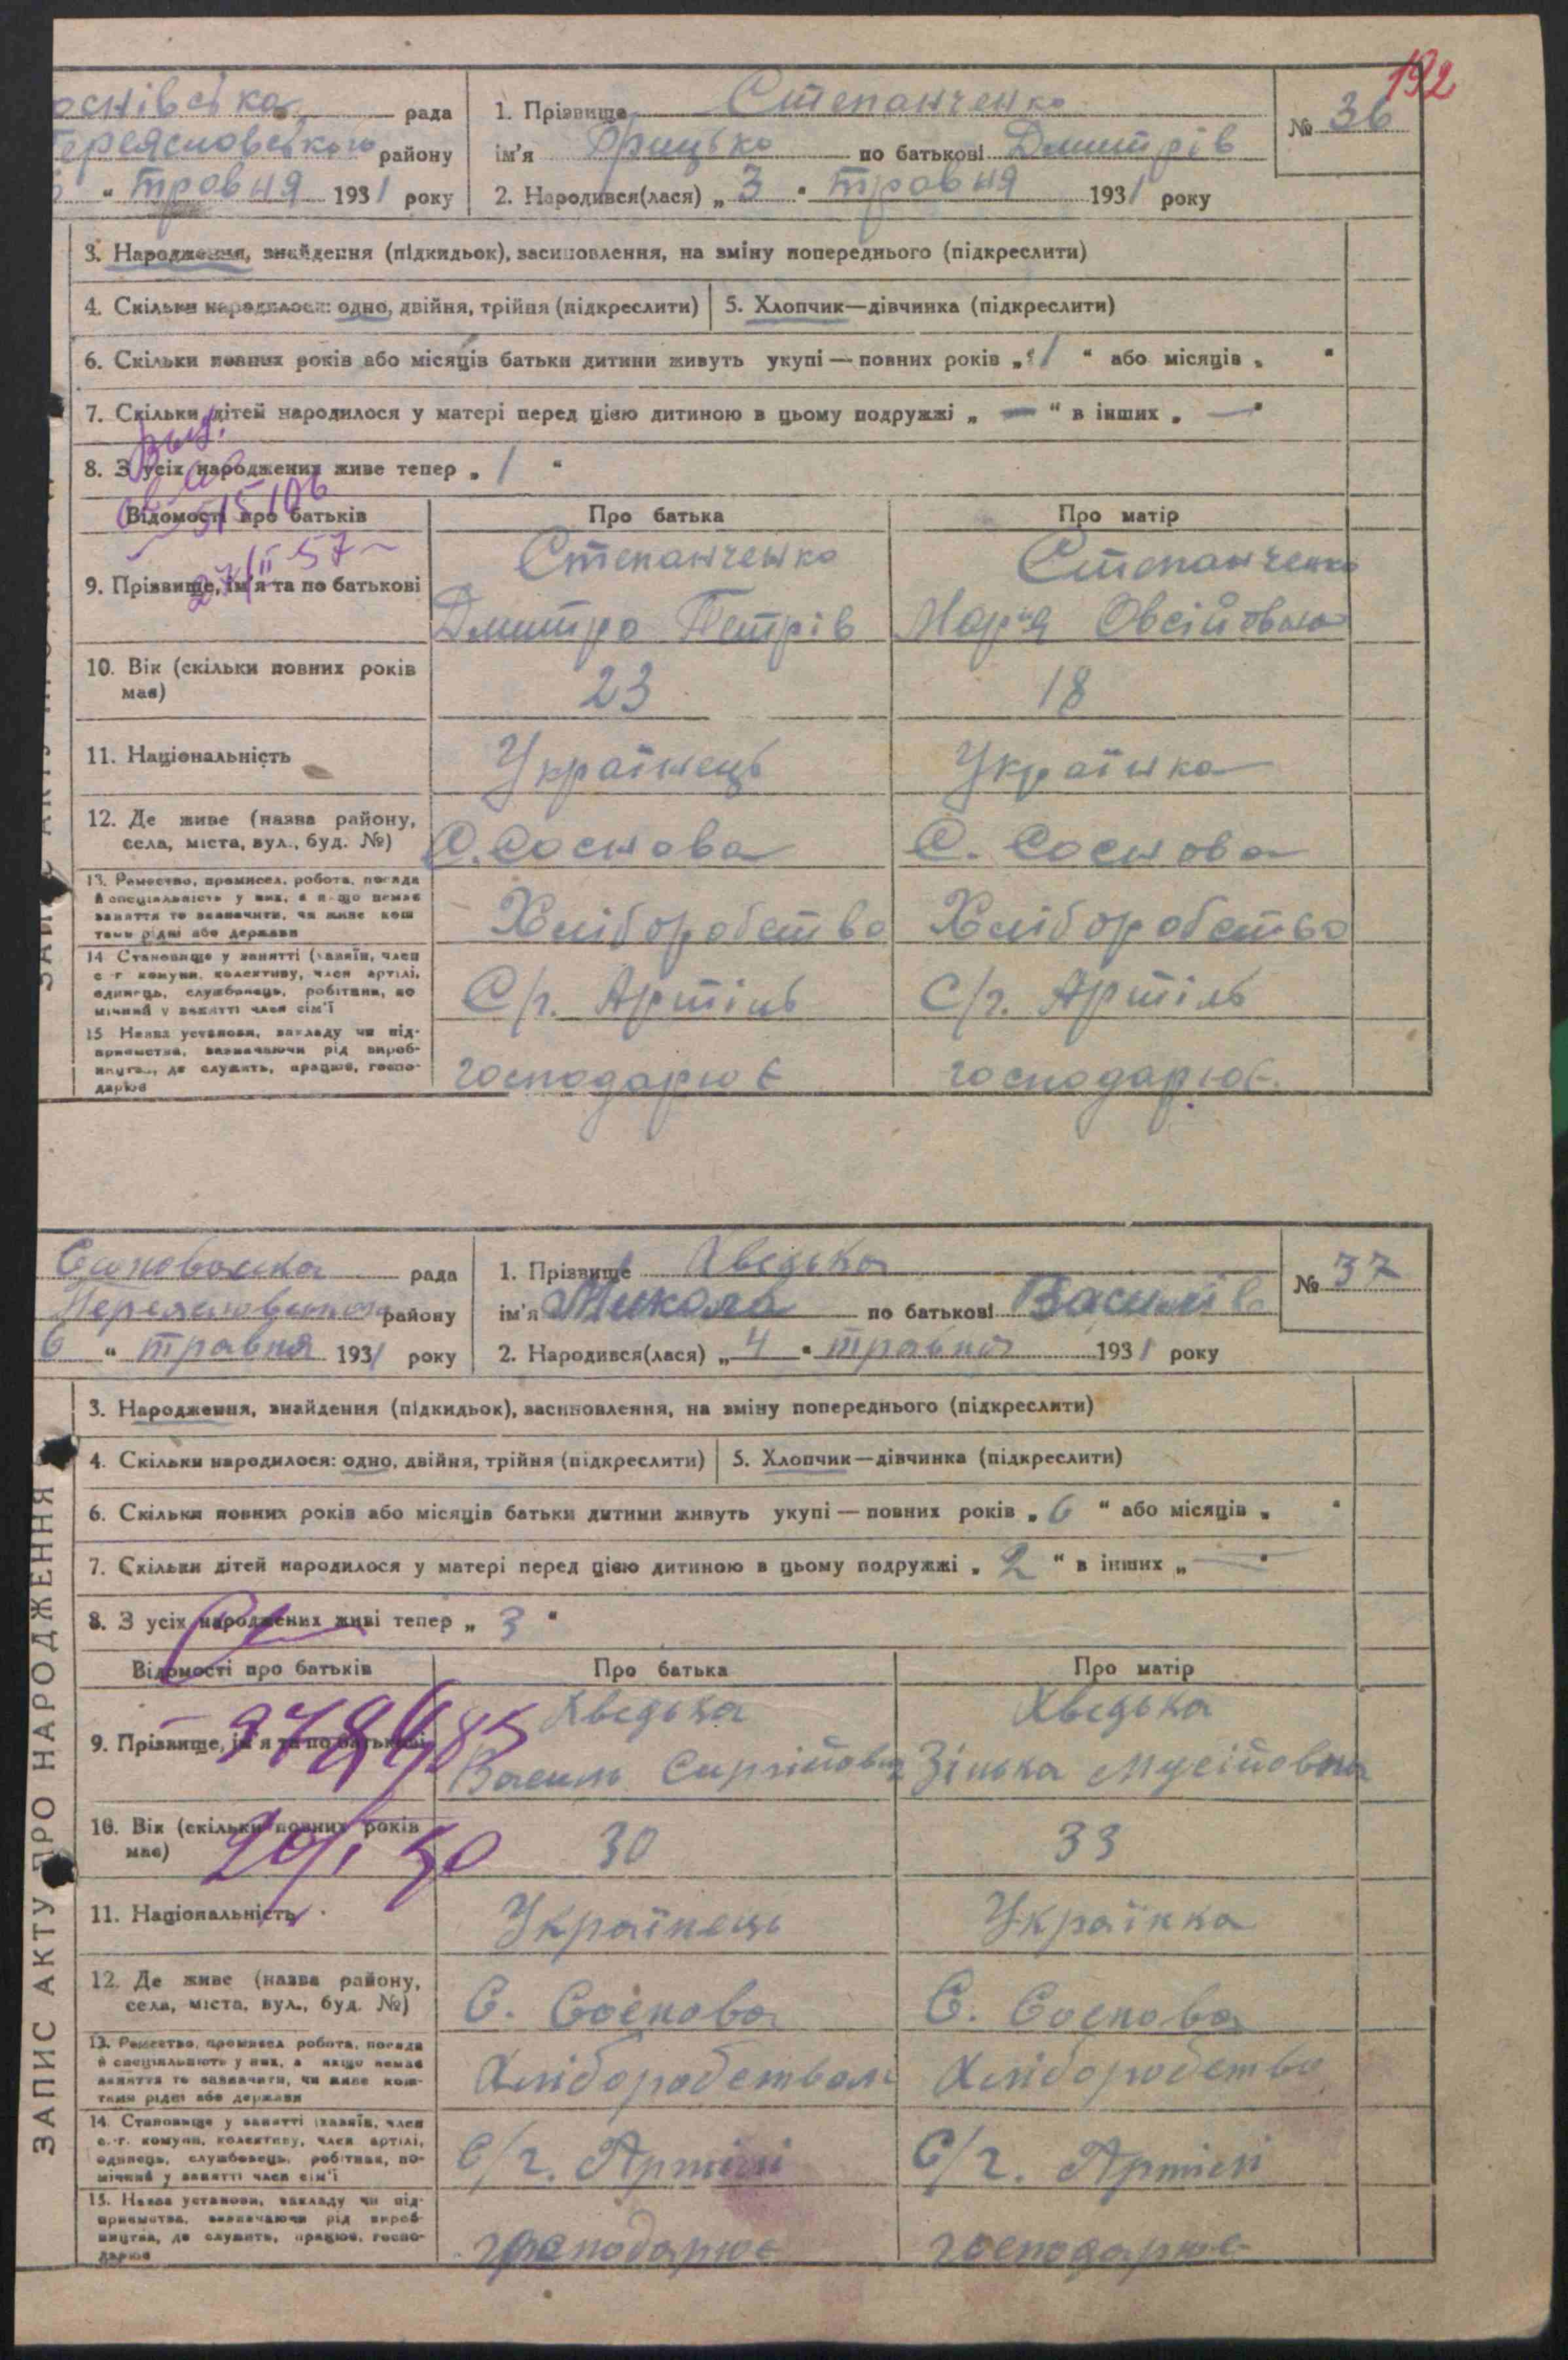 192
оснівська рада
1. Прізвище Степанченко
№ 36
ереясловського району
ім'я Грицько по батькові Дмитрів
" травня 1931 року
2. Народився(лася) „ 3 " травня 1931 року
3. Народження, знайдення (підкидьок), засиновлення, на зміну попереднього (підкреслити)
4. Скільки народилося: одно, двійня, трійня (підкреслити) 5. Хлопчик—дівчинка (підкреслити)
6. Скільки повних років або місяців батьки дитини живуть укупі — повних років „ 1 " або місяців „ "
7. Скільки дітей народилося у матері перед цією дитиною в цьому подружжі „ — " в інших „ — "
8. З усіх народжених живе тепер „ 1 "
Відомості про батьків Про батька Про матір
9. Прізвище, ім'я та по батькові
Степанченко Степанченко
Дмитро Петрів Марія Овсійовна
10. Вік (скільки повних років має) 23 18
11. Національність Українець Українка
12. Де живе (назва району, села, міста, вул., буд. №) С. Соснова С. Соснова
13. Ремество, промисел, робота, посада й спеціальність у них, а якщо немає заняття то зазначити, чи живе коштами рідні або держави
Хліборобство Хліборобство
14. Становище у занятті (хазяїн, член с.-г. комуни, колективу, член артілі, одинець, службовець, робітник, помічний у занятті член сім'ї
С/г. Артіль С/г. Артіль
15. Назва установи, закладу чи підприємства, зазначаючи рід виробництва, де служить, працює, господарює
господарює господарює.
рада
1. Прізвище Хведька
№ 37
району
ім'я Микола по батькові Василів
6 " травня 1931 року
2. Народився(лася) „ 4 " травня 1931 року
ЗАПИС АКТУ ПРО НАРОДЖЕННЯ
3. Народження, знайдення (підкидьок), засиновлення, на зміну попереднього (підкреслити)
4. Скільки народилося: одно, двійня, трійня (підкреслити) 5. Хлопчик—дівчинка (підкреслити)
6. Скільки повних років або місяців батьки дитини живуть укупі — повних років „ 6 " або місяців „ "
7. Скільки дітей народилося у матері перед цією дитиною в цьому подружжі „ 2 " в інших „ — "
8. З усіх народжених живі тепер „ 3 "
Відомості про батьків Про батька Про матір
9. Прізвище, ім'я та по батькові
Хведька Хведька
Василь Зінька Мусійовна
10. Вік (скільки повних років має) 30 33
11. Національність Українець Українка
12. Де живе (назва району, села, міста, вул., буд. №) С. Соснова С. Соснова
13. Ремество, промисел робота, посада й спеціальність у них, а якщо немає заняття то зазначити, чи живе коштами рідні або держави
Хліборобством Хліборобство
14. Становище у занятті (хазяїн, член с.-г. комуни, колективу, член артілі, одинець, службовець, робітник, помічний у занятті член сім'ї
С/г. Артілі С/г. Артілі
15. Назва установи, закладу чи підприємства, зазначаючи рід виробництва, де служить, працює, господарює
господарює господарює